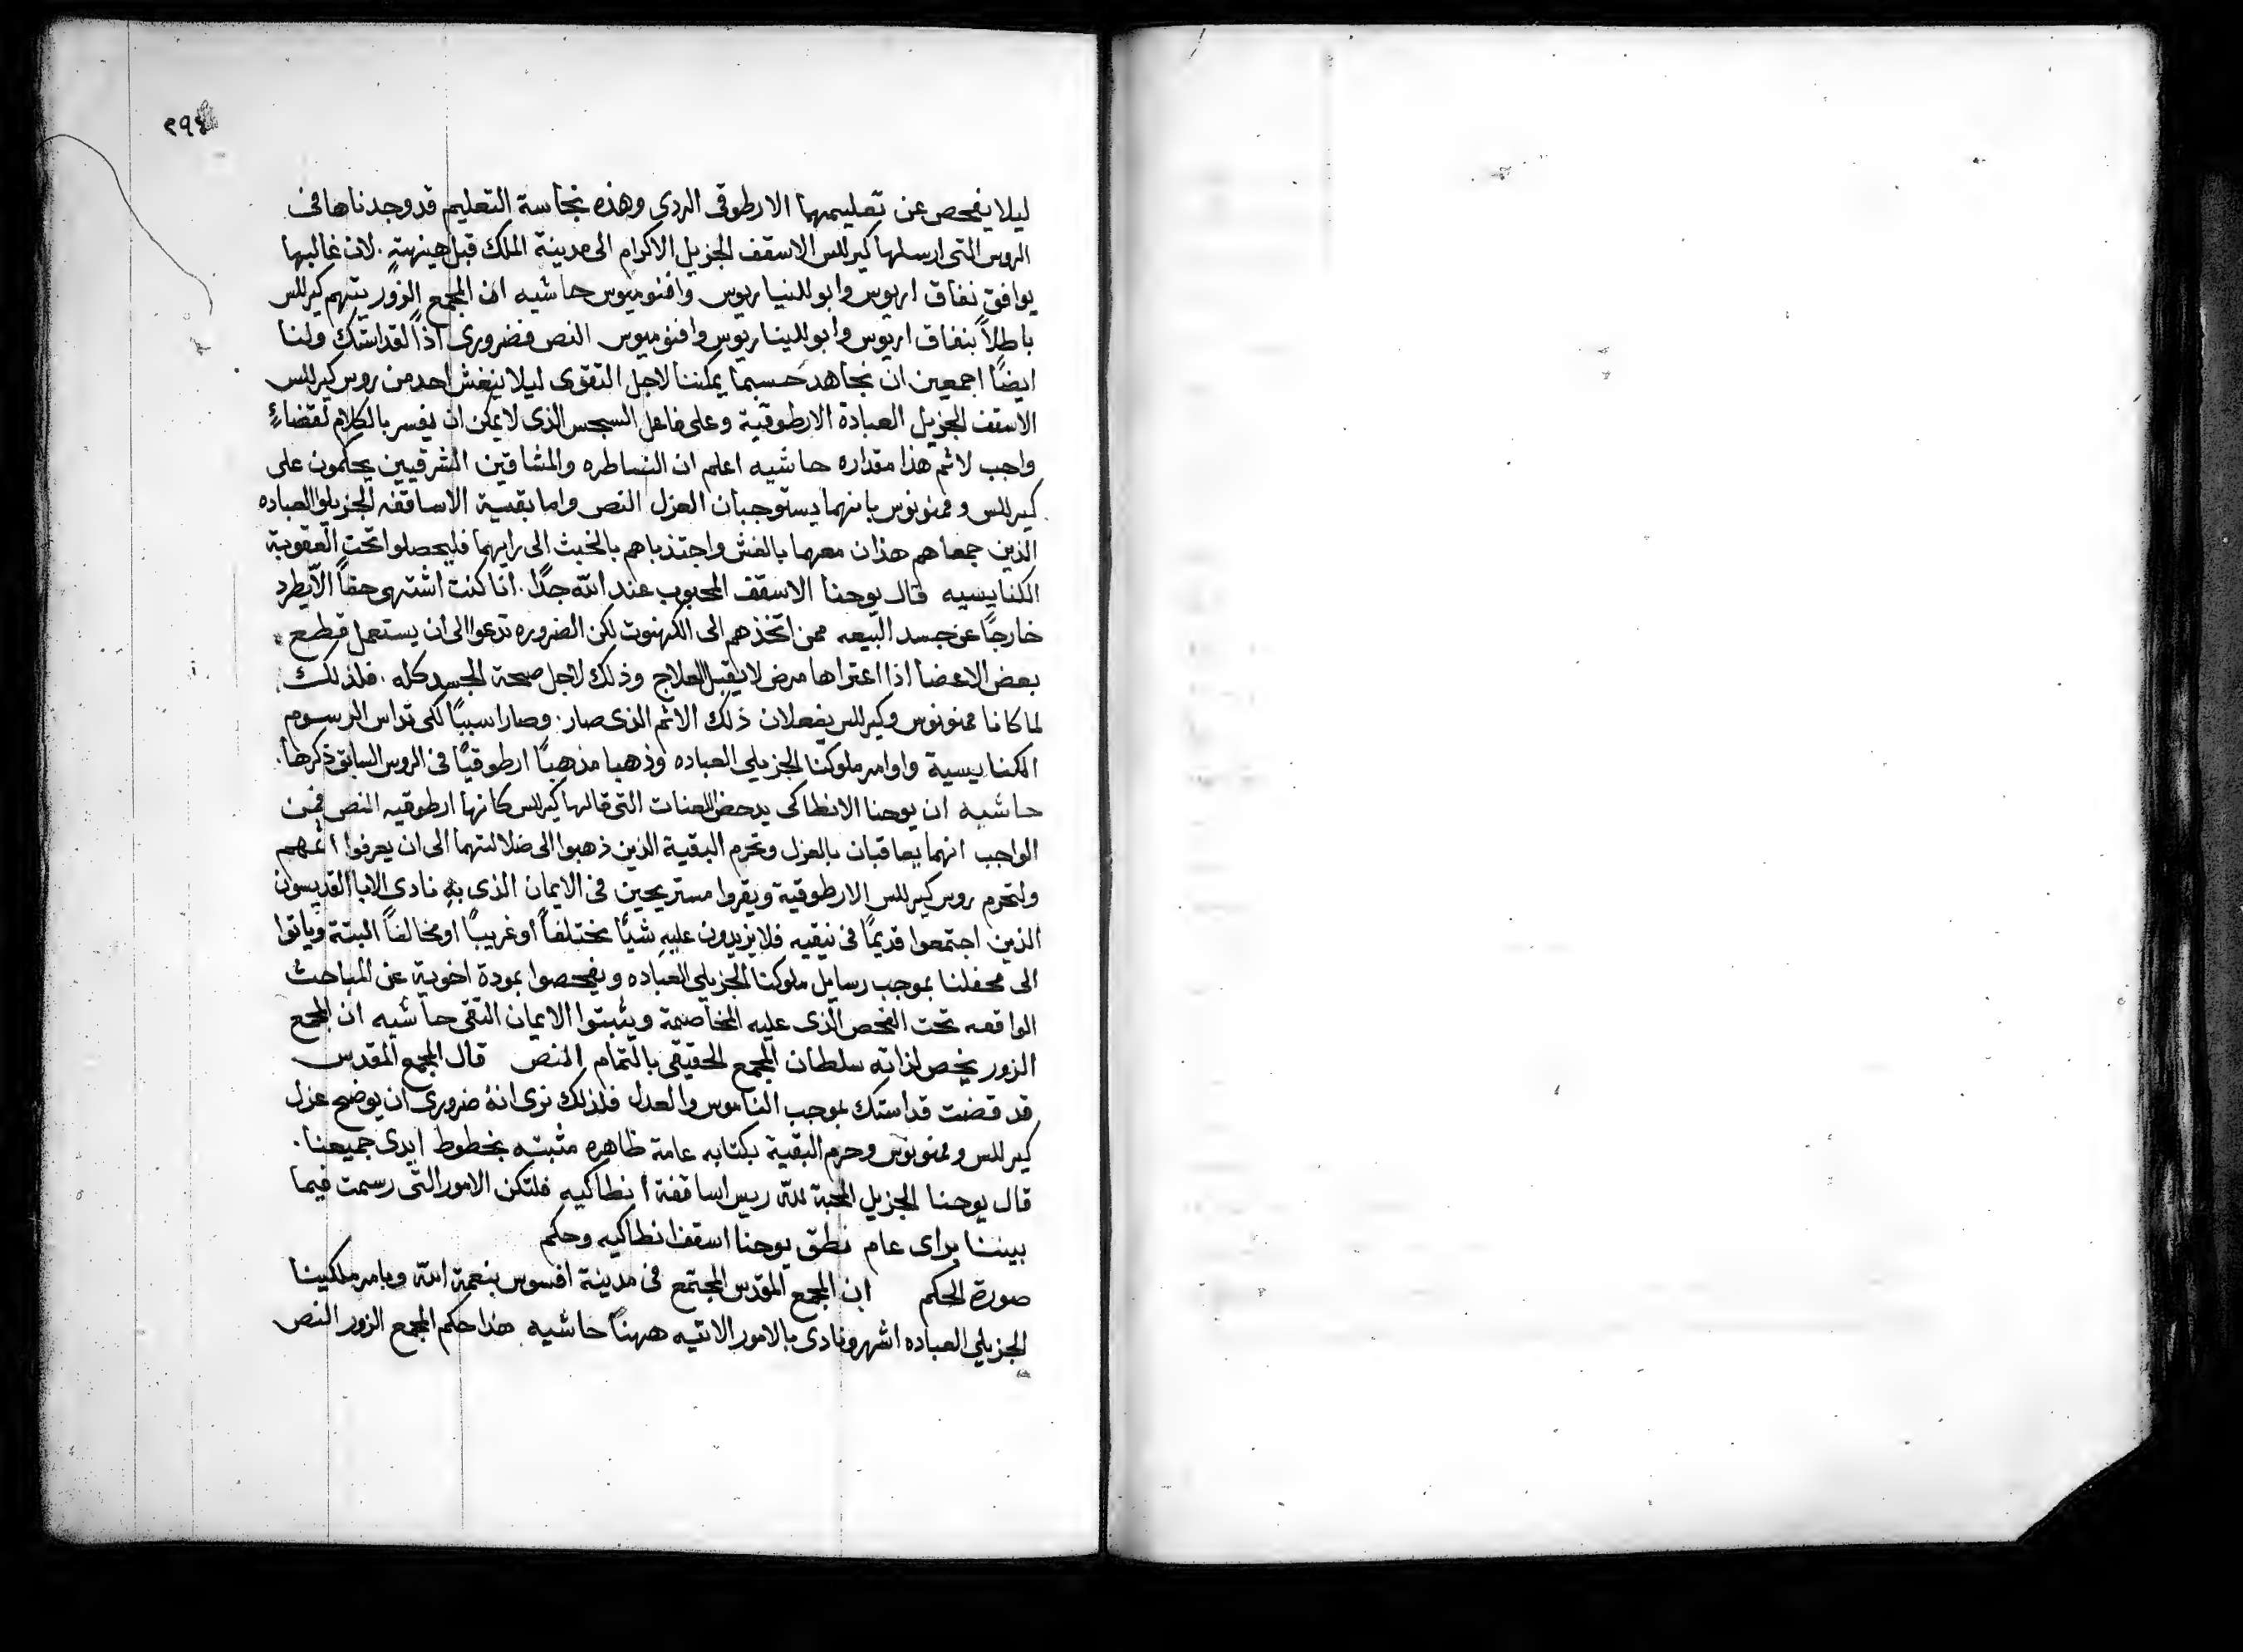 ليلا يفحص عن تعليمهما الارطوقى الردى وهذه نجاسة التعليم قد وجدناها فى
الروس التى ارسلها كيرللس الاسقف الجزيل الاكرام الى مدينة الملك قبل هينهتهٍ. لان غالبها
يوافق نفاق اريوس وابوللنياريوس وافنوميوس حاشيه ان المجمع الزور يتهم كيرللس
باطلاً بنفاق اريوس وابوللينا ريوس وافنوميوس النص فضرورى اذاً لقداستك ولنا
ايضًا اجمعين ان نجاهد حسبما يمكننا لاجل التقوى ليلا ينغش احد من روس كيرللس
الاسقف الجزيل العبادة الارطوقية وعلى فاعل السجس الذى لا يمكن ان يفسر بالكلام لقضاءٍ
واجب لاثم هذا مقداره حاشيه اعلم ان النساطره والمشاقين الشرقيين يحكمون على
كيرللس وممنونوس بانهما يستوجبان العزل النص واما بقية الاساقفه الجزيلوا العباده
الذين جمعاهم هذان معهما بالغش واجتذباهم بالخبث الى رايهما فليحصلوا تحت العقوبة
الكنايسيه قال يوحنا الاسقف المحبوب عند الله جدًا. انا كنت اشتهى حقاً الّا يطرد
خارجًا عن جسد البيعه ممن اتخذهم الى الكهنوت لكن الضروره تدعوا الى ان يستعمل قطع
بعض الاعضا اذا اعتراها مرض لا يقبل العلاج وذلك لاجل صحة الجسد كله. فلذلك
لما كانا ممنونوس وكيرللس يفعلان ذلك الاثم الذى صار. وصارا سببًا لكى تداس الرسوم
الكنايسية واوامر ملوكنا الجزيلى العباده وذهبا مذهباً ارطوقيًا فى الروس السابق ذكرها.
حاشيه ان يوحنا الانطاكى يدحض اللعنات التى قالها كيرللس كانها ارطوقيه النص فمن
الواجب انهما يعاقبان بالعزل وتحرم البقية الذين ذهبوا الى ضلالتهما الى ان يعرفوا اثمهم
ولتحرم روس كيرللس الارطوقية ويقروا مستريحين فى الايمان الذى بهِ نادى الابا القديسون
الذين اجتمعوا قديمًا فى نيقيه فلا يزيدون عليهِ شيئًا مختلفاً او غريباً او مخالفاً البتة وياتوا
الى محفلنا بموجب رسايل ملوكنا الجزيلى العباده ويفحصوا بمودة اخوية عن المباحث
الواقعه تحت الفحص الذى عليه المخاصمة ويثبتوا الايمان التقى حاشيه ان المجمع
الزور يخص لذاته سلطان المجمع الحقيقى بالتمام النص قال المجمع المقدس
قد قضت قداستك بموجب الناموس والعدل فلذلك نرى انهُ ضرورى ان يوضح عزل
كيرللس وممنونوس وحرم البقية بكتابه عامة ظاهره مثبته بخطوط ايدى جميعنا.
قال يوحنا الجزيل المحبة لله ريس اساقفة انطاكيه فلتكن الامور التى رسمت فيما
بيننا براى عام نطق يوحنا اسقف انطاكيه وحكم
صورة الحكم ان المجمع المقدس المجتمع فى مدينة افسوس بنعمة الله وبامر ملكينا
الجزيلى العباده اشهر ونادى بالامور الاتيه ههنا حاشيه هذا حكم المجمع الزور النص